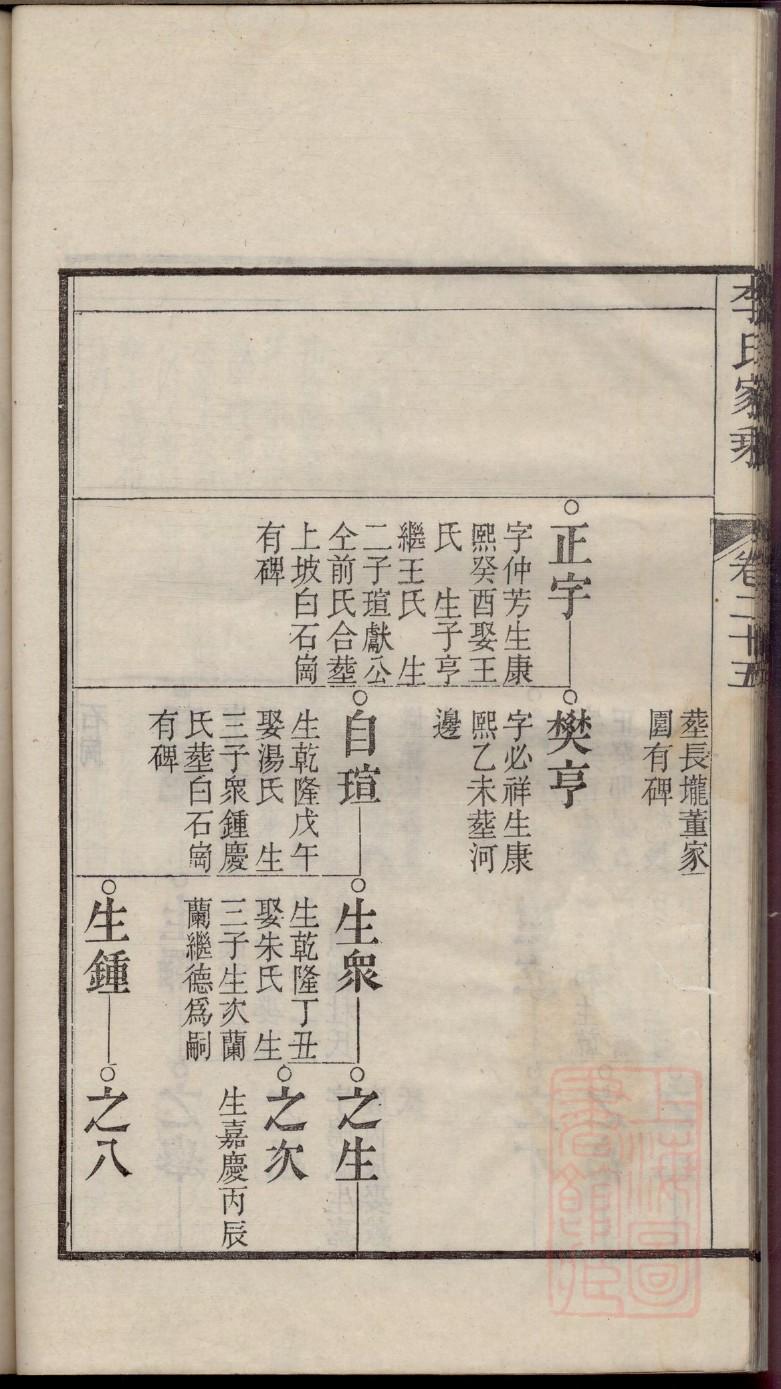 李氏家乘
卷二十五
塟長壠董家
圍有碑
正字
字仲芳生康
熙癸酉娶王
氏　生子亨
繼王氏　生
二子瑄獻公
仝前氏合塟
上坡白石崗
有碑
樊亨
字必祥生康
熙乙未塟河
邊
自瑄
生乾隆戊午
娶湯氏　生
三子衆鍾慶
氏塟白石崗
有碑
生衆
生乾隆丁丑
娶朱氏　生
三子生次蘭
蘭繼德爲嗣
之生
之次
生嘉慶丙辰
生鍾
之八
上海圖
書館藏